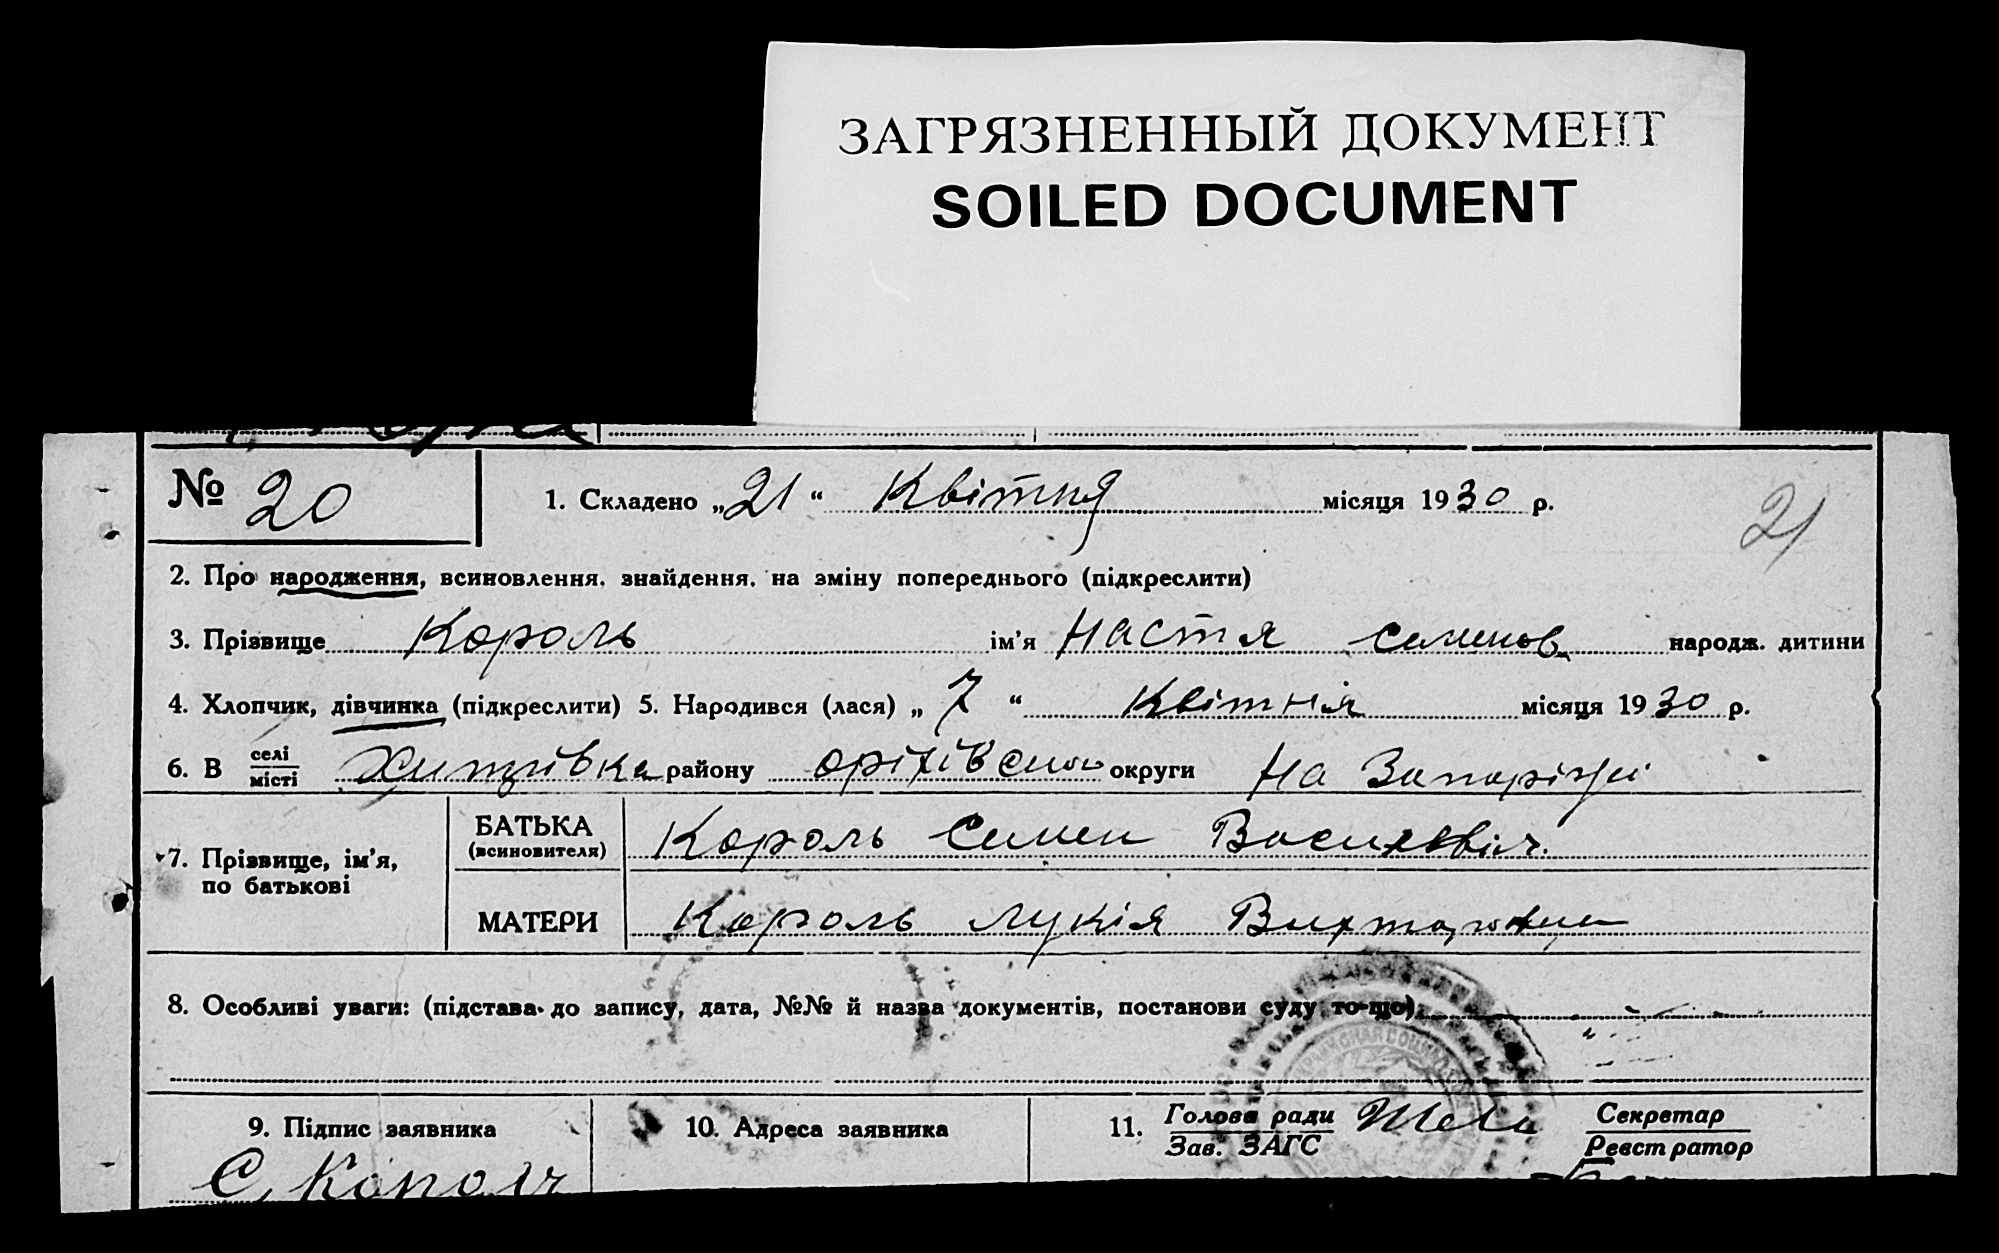 ЗАГРЯЗНЕННЫЙ ДОКУМЕНТ
SOILED DOCUMENT
№ 20
1. Складено „21“ Квітня місяця 1930 р.
21
2. Про народження, всиновлення, знайдення, на зміну попереднього (підкреслити)
3. Прізвище Король ім'я Настя Семенов народж. дитини
4. Хлопчик, дівчинка (підкреслити) 5. Народився (лася) „7“ Квітня місяця 1930 р.
6. В селі/місті району Оріхівськ округи На Запоріжі
7. Прізвище, ім'я, по батькові
БАТЬКА (всиновителя) Король Семен Василевіч.
МАТЕРИ Король Лукія
8. Особливі уваги: (підстава до запису, дата, №№ й назва документів, постанови суду то-що)
9. Підпис заявника
С. Король
10. Адреса заявника
11. Голова ради
Зав. ЗАГС
Секретар
Реєстратор